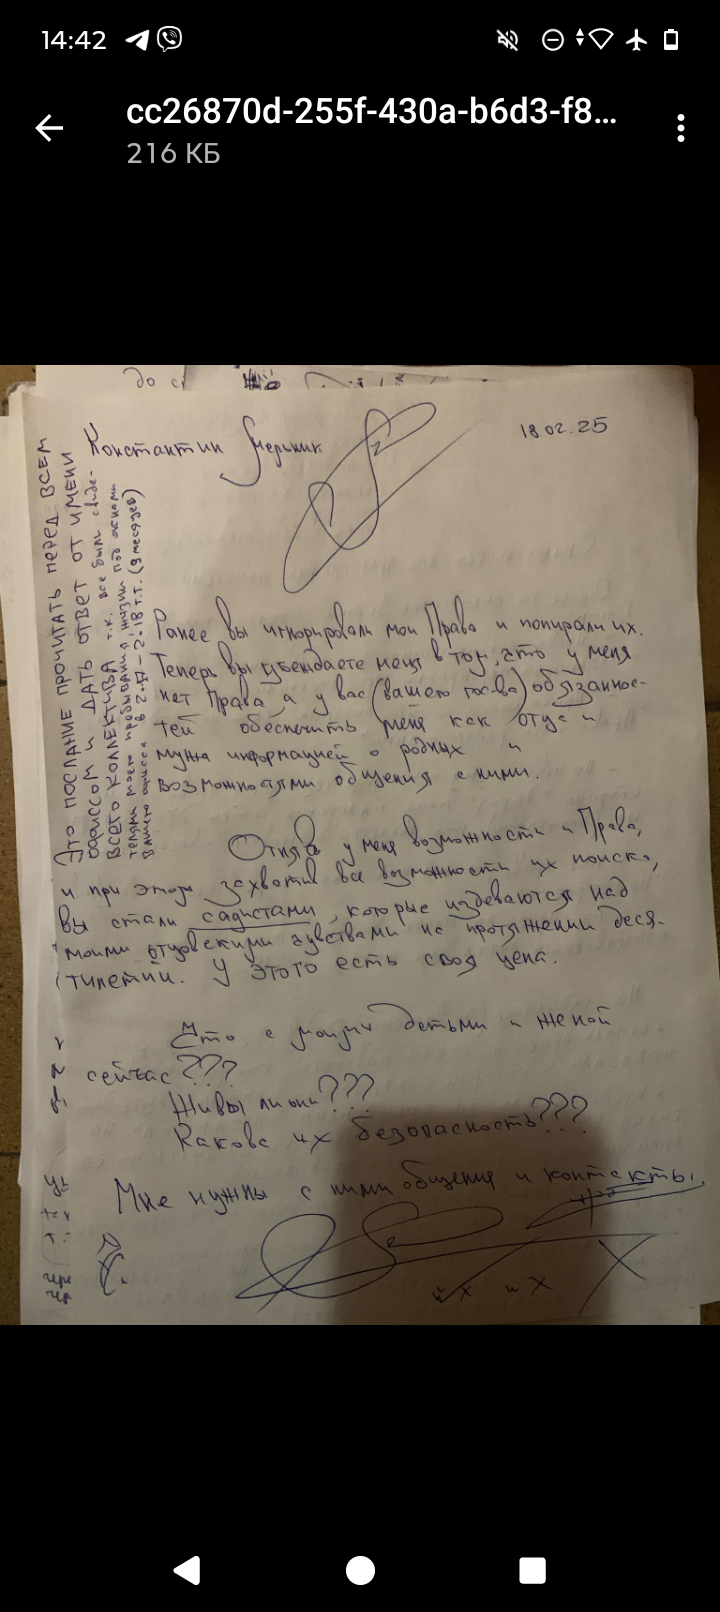 14:42
cc26870d-255f-430a-b6d3-f8...
216 КБ
до
Константин Мельник
18.02.25
Это послание прочитать перед всем
офисом и дать ответ от имени
всего коллектива т.к. все были свиде-
телями моего пребывания, жизни под окнами
вашего офиса в 2017-2018 г.г. (9 месяцев)
Ранее вы игнорировали мои Права и попирали их.
Теперь вы убеждаете меня в том, что у меня
нет Права, а у вас (вашего гос-ва) обязаннос-
тей обеспечить меня как отца и
мужа информацией о родных и
возможностями общения с ними.
Отняв у меня возможности и Права,
и при этом захватив все возможности их поиска,
вы стали садистами, которые издеваются над
моими отцовскими чувствами на протяжении деся-
тилетий. У этого есть своя цена.
Что с моими детьми и женой
сейчас???
Живы ли они???
Какова их безопасность???
Мне нужны с ними общения и контакты.